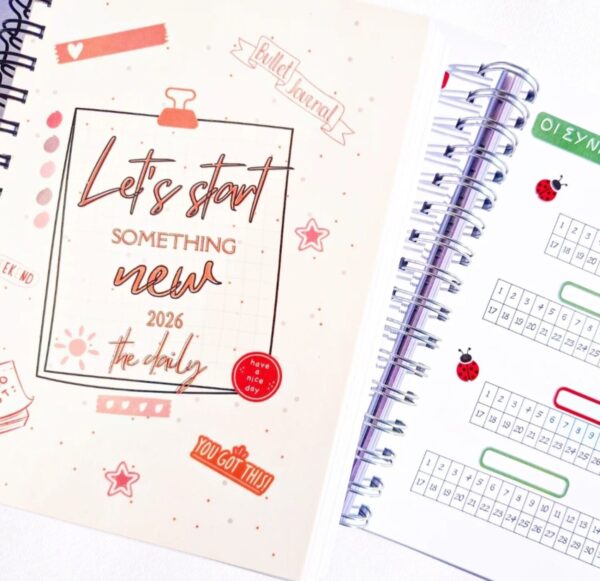 Bullet
Journal
Let's start
SOMETHING
new
2026
the daily
have
a
nice
day
YOU GOT THIS!
ΟΙ ΣΥΝ
1 2 3 4
17 18 19 20
1 2 3 4 5 6 7 8
17 18 19 20 21 22 23
1 2 3 4 5 6 7 8 9
17 18 19 20 21 22 23 24 25 26
1 2 3 4 5 6 7 8 9 10 11 12
17 18 19 20 21 22 23 24 25 26 27 28 29 30